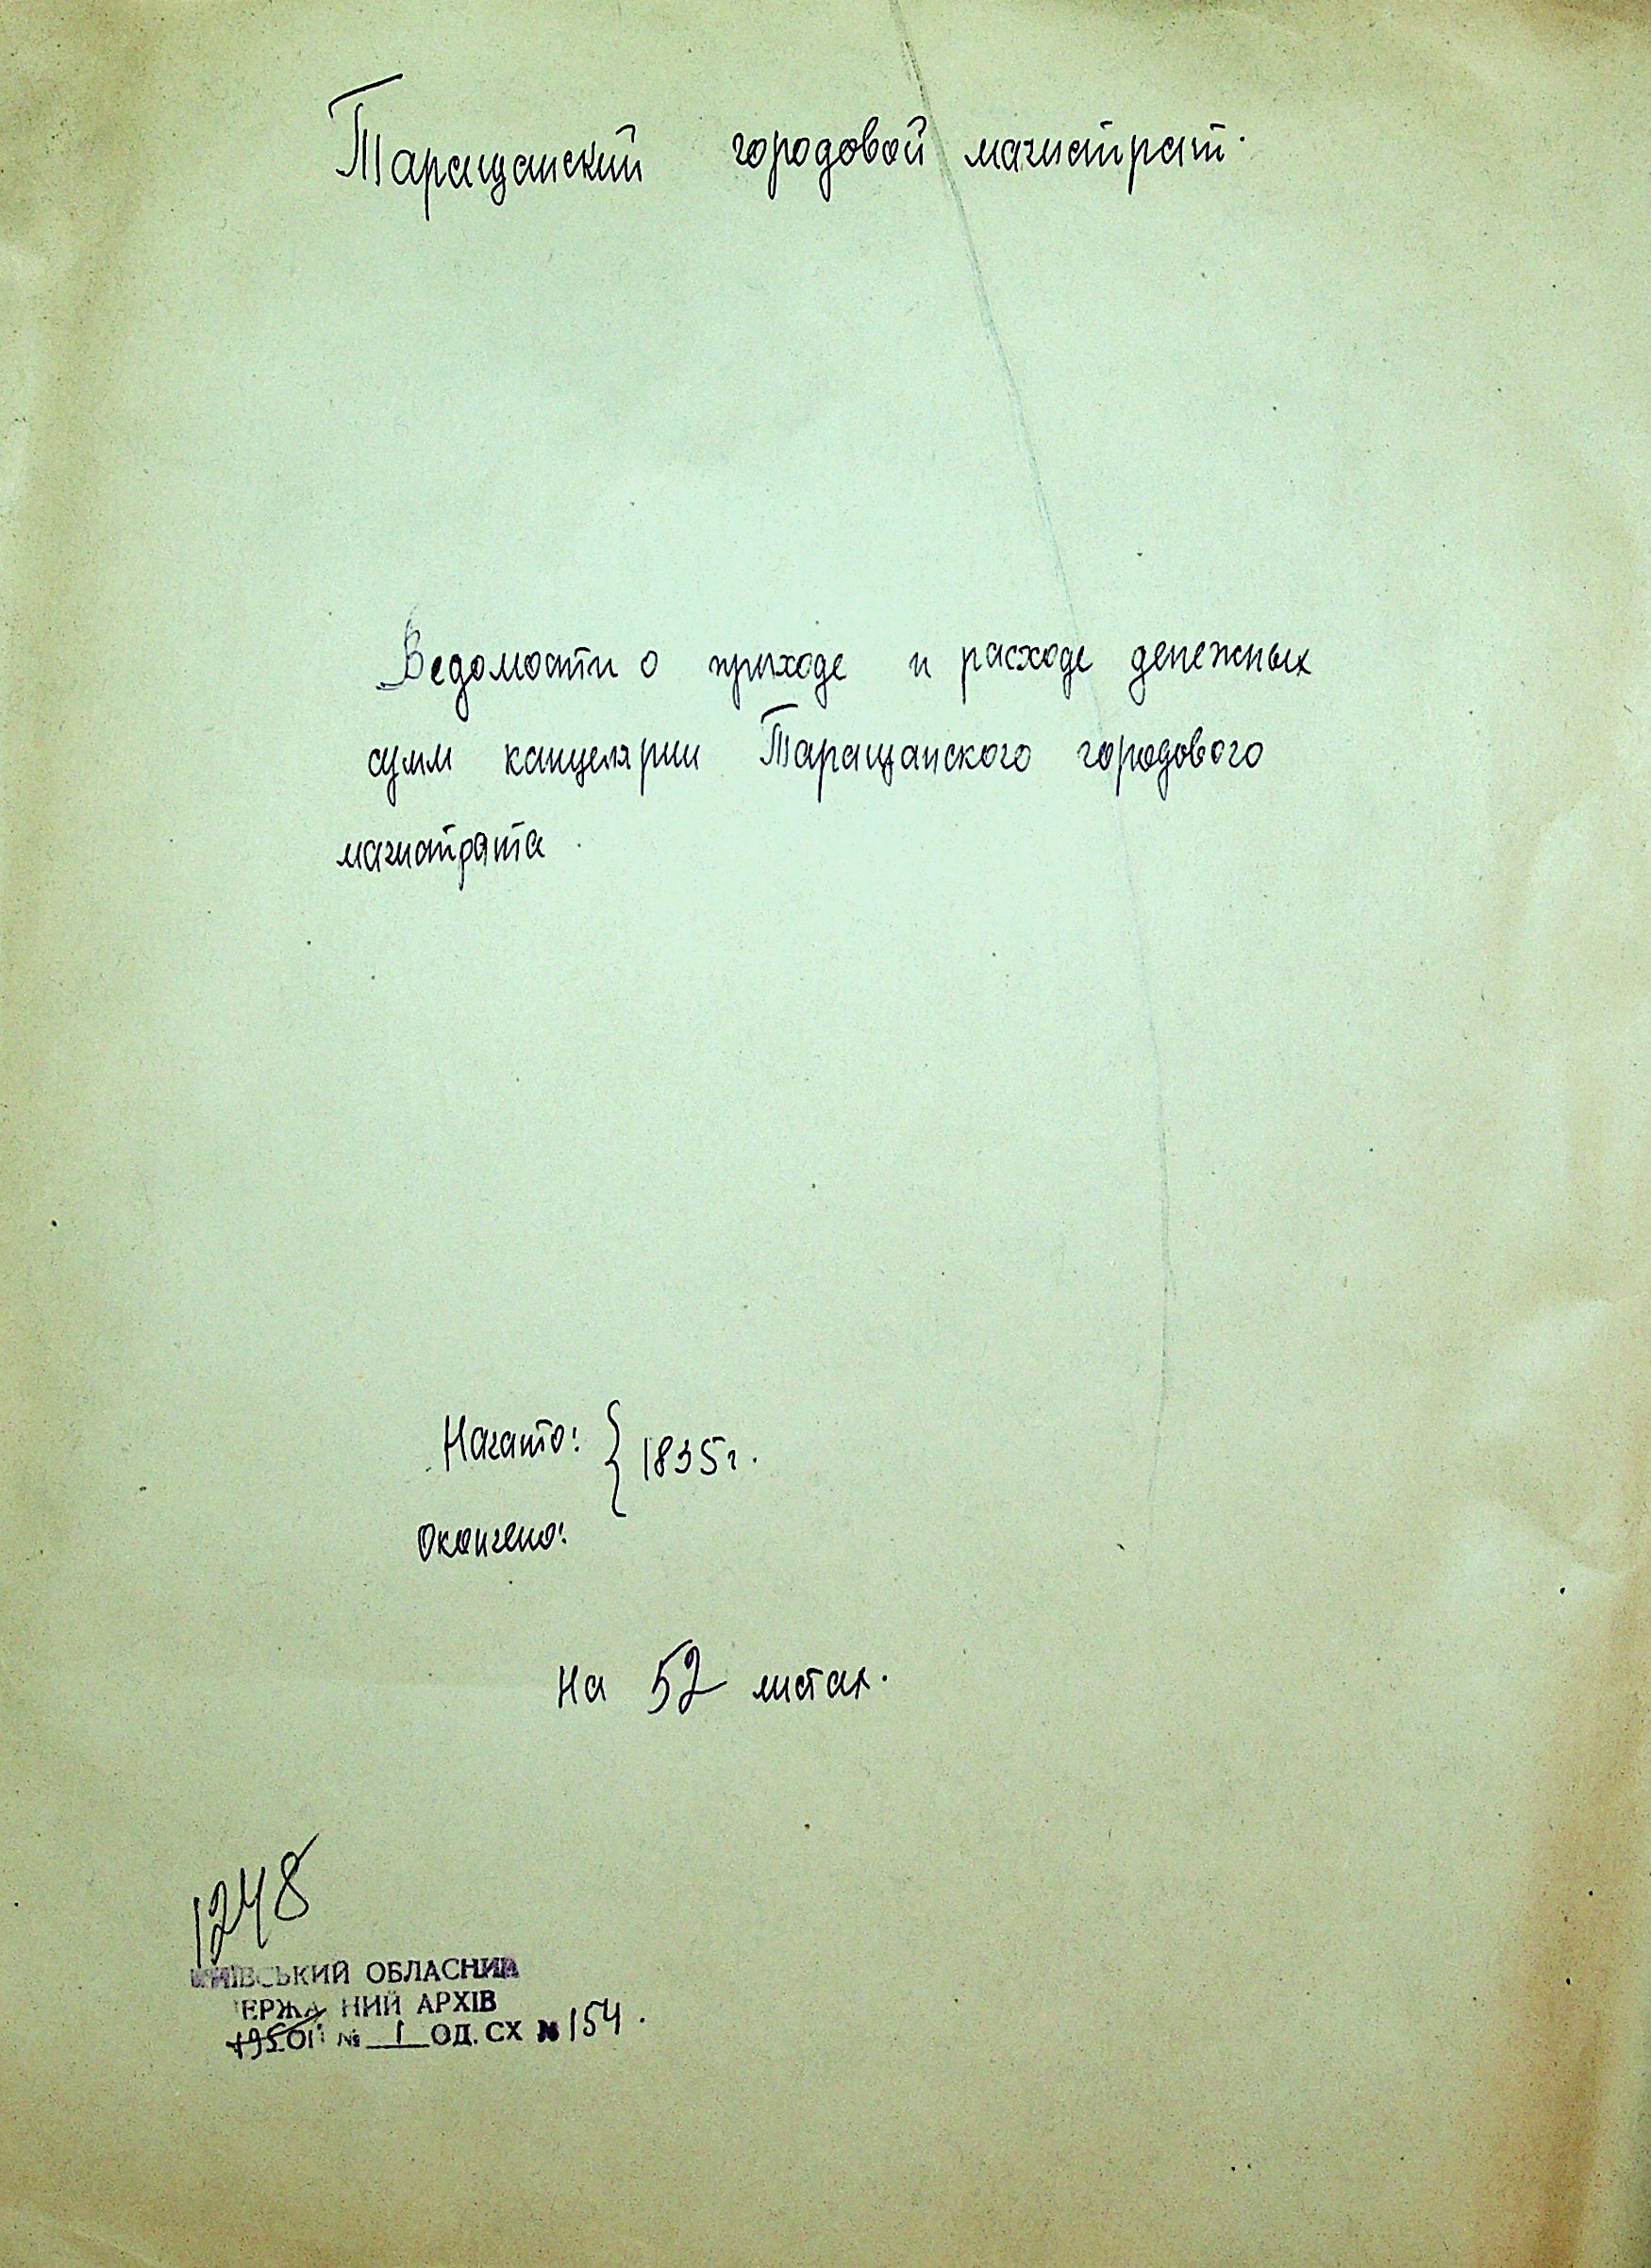 Таращанский городовой магистрат.
Ведомости о приходе и расходе денежных
сумм канцелярии Таращанского городового
магистрата
Начато: } 1835 г.
Окончено:
На 52 листах.
1248
КИЇВСЬКИЙ ОБЛАСНИЙ
ЕРЖА НИЙ АРХІВ
№ 1 ОД. СХ № 154.